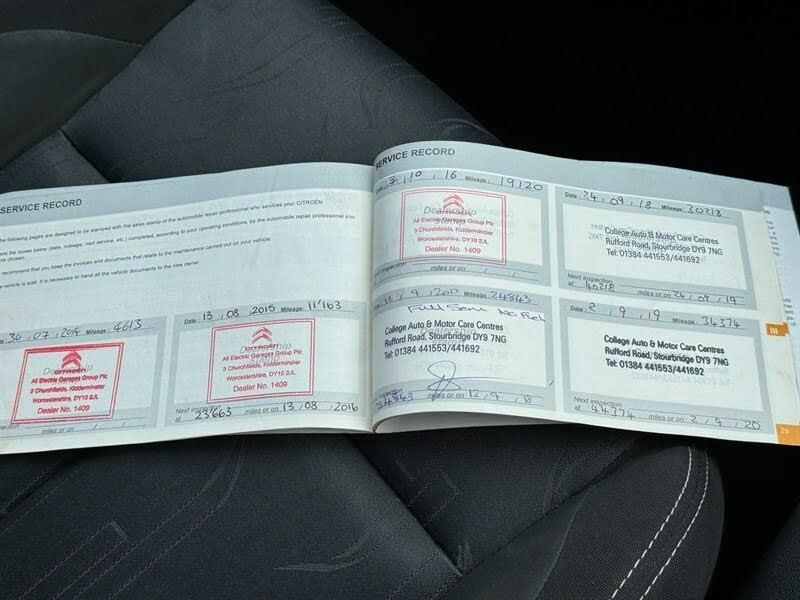 SERVICE RECORD
The following pages are designed to be stamped with the sales stamp of the automobile repair professional who services your CITROËN
the boxes below (date, mileage, next service, etc.) completed, according to your operating conditions, by the automobile repair professional you
chosen.
recommend that you keep the invoices and documents that relate to the maintenance carried out on your vehicle.
vehicle is sold, it is necessary to hand all the vehicle documents to the new owner.
30, 07, 2014 Mileage: 4613
Dealership
All Electric Garages Group Plc
3 Churchfields, Kidderminster
Worcestershire, DY10 2JL
Dealer No. 1409
miles or on / /
Date: 13, 08, 2015 Mileage: 11'163
Dealership
All Electric Garages Group Plc
3 Churchfields, Kidderminster
Worcestershire, DY10 2JL
Dealer No. 1409
Next inspection
at 23663 miles or on 13, 08, 2016
SERVICE RECORD
3, 10, 16 Mileage: 19120
Dealership
All Electric Garages Group Plc
3 Churchfields, Kidderminster
Worcestershire, DY10 2JL
Dealer No. 1409
inspection
miles or on / /
13, 9, 2017 Mileage: 24843
Full Serv No Fuel
College Auto & Motor Care Centres
Rufford Road, Stourbridge DY9 7NG
Tel: 01384 441553/441692
inspection
34843 miles or on 12, 9, 18
Date: 24, 09, 18 Mileage: 30218
College Auto & Motor Care Centres
Rufford Road, Stourbridge DY9 7NG
Tel: 01384 441553/441692
Next inspection
at 40218 miles or on 24, 09, 19
Date: 2, 9, 19 Mileage: 34374
College Auto & Motor Care Centres
Rufford Road, Stourbridge DY9 7NG
Tel: 01384 441553/441692
Next inspection
at 44374 miles or on 2, 9, 20
III
29